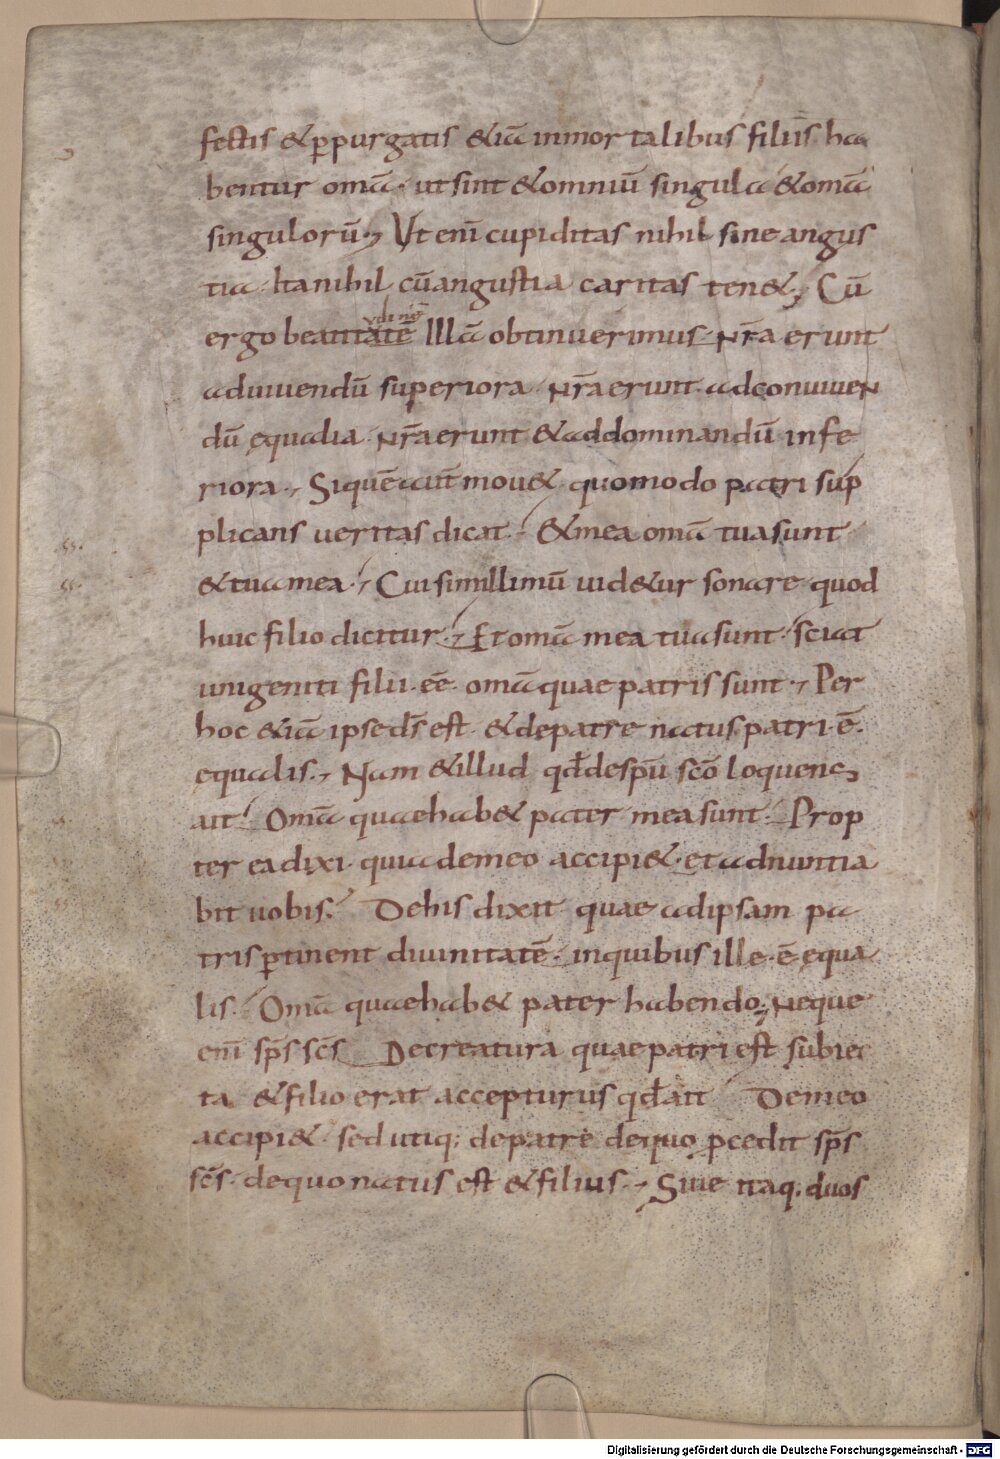 fectis & ꝑpurgatis &iā inmortalibus filiis ha
bentur om̄a · ut sint & omniū singula & om̄a
singulorū · Ut eni̅ cupiditas nihil sine angus
tia · Ita nihil cū angustia caritas ten& · Cū
ergo beatitatē illā obtinuerimus · nr̄a erunt
udinē
ad uiuendū superiora · nr̄a erunt · ad conuiuen
dū ęqualia · nr̄a erunt & ad dominandū infe
riora · Si quē aut̄ mou& · quomodo patri sup
plicans ueritas dicat · & mea om̄a tua sunt ·
& tua mea · Cui simillimū uid&ur sonare · quod
huic filio dicitur · Et om̄a mea tua sunt · sciat
unigeniti filii · ēē · om̄a quae patris sunt · Per
hoc &iā ipse ds̄ est · & de patre natus patri · ē ·
equalis · Nam & illud qd̄ de spū scō loquens
ait · Om̄a quae hab& pater mea sunt · Prop
ter ea dixi · quia de meo accipi& · et adnuntia
bit uobis · De his dixit quae ad ipsam pa
tris ꝑtinent diuinitatē · in quibus ille · ē ęqua
lis · Om̄a quae hab& pater habendo · Neque
eni̅ sps̄ scs̄ De creatura quae patri est subiec
ta & filio erat accepturus qd̄ ait De meo
accipi& · sed utiq; de patre de quo ꝓcedit sps̄
scs̄ · de quo natus est & filius · Siue itaq; duos
Digitalisierung gefördert durch die Deutsche Forschungsgemeinschaft - DFG